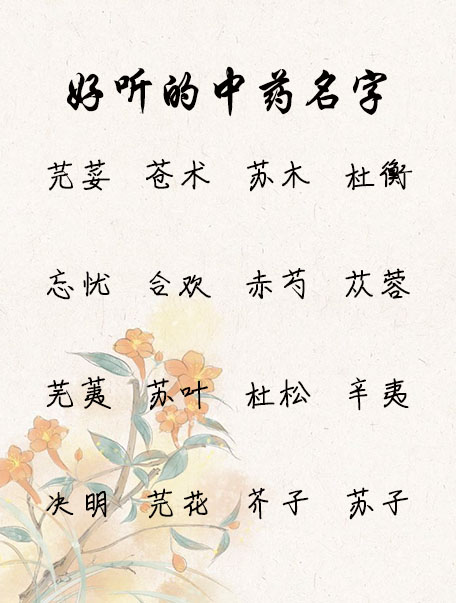 好听的中药名字
芫荽 苍术 苏木 杜衡
忘忧 合欢 赤芍 苁蓉
芜荑 苏叶 杜松 辛夷
决明 芫花 芥子 苏子